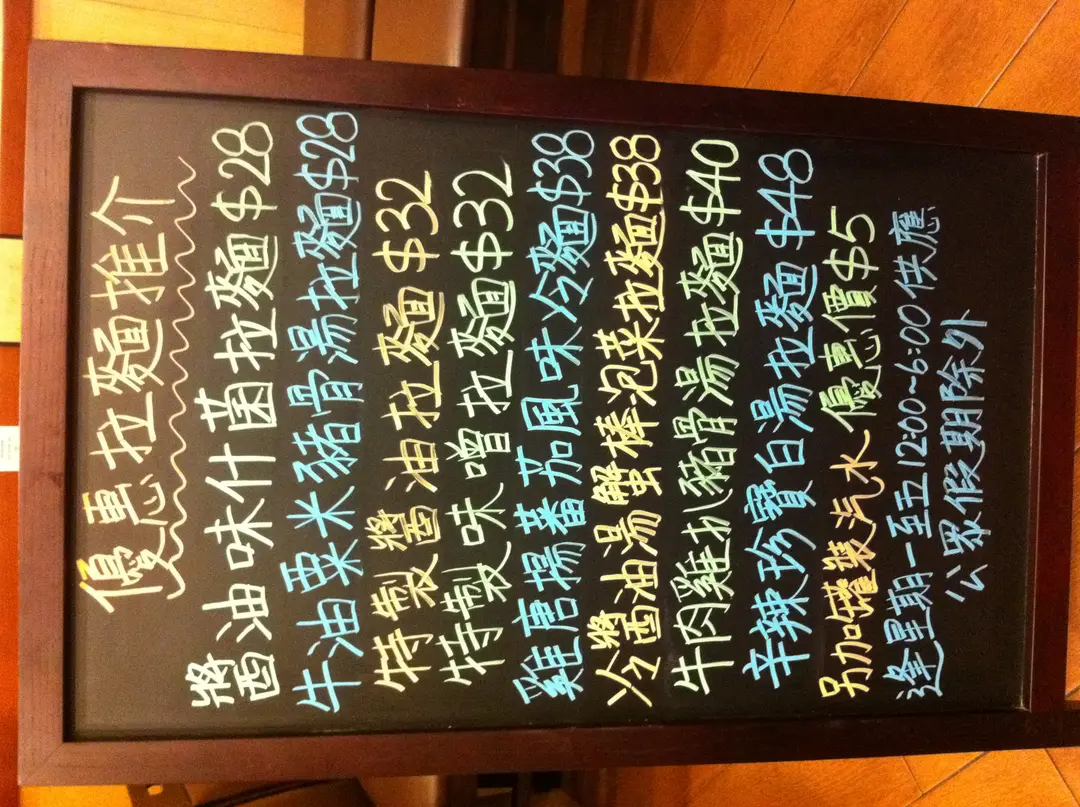 優惠拉麵推介
醬油味什菌拉麵$28
牛油粟米豬骨湯拉麵$28
特製醬油拉麵$32
特製味噌拉麵$32
雞唐揚蕃茄風味冷麵$38
冷醬油湯蟹棒泡菜拉麵$38
牛肉雞扒豬骨湯拉麵$40
辛辣珍寶白湯拉麵$48
另加罐裝汽水優惠價$5
逢星期一至五12:00~6:00供應
公眾假期除外